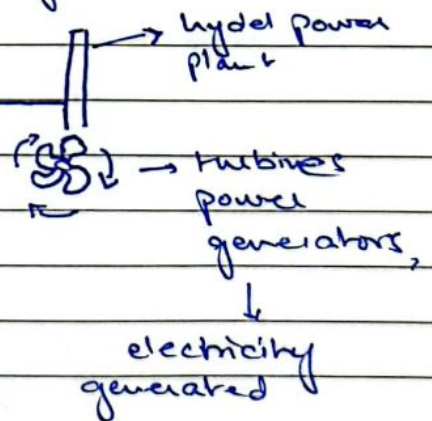 hydel power
plant
turbines
power
generators,
electricity
generated